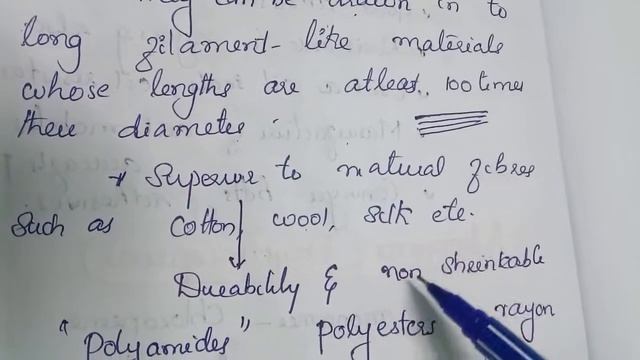 may can be drawn in to
long filament-like materials
whose lengths are atleast 100 times
there diameter
* Superior to natural fibres
such as cotton, wool, silk etc.
Durability & non shrinkable
"Polyamides" polyesters rayon